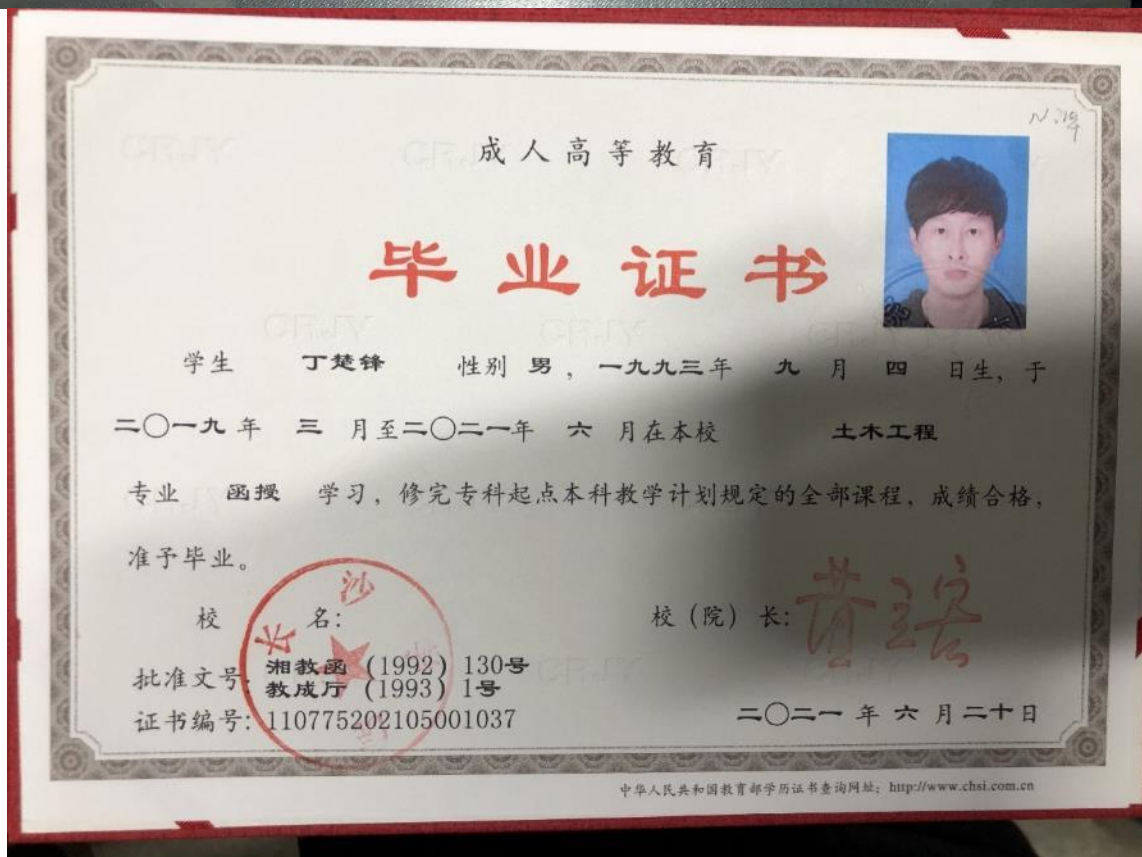 成人高等教育
毕业证书
学生 丁楚锋 性别 男，一九九三年 九 月 四 日生，于
二〇一九 年 三 月至二〇二一年 六 月在本校 土木工程
专业 函授 学习，修完专科起点本科教学计划规定的全部课程，成绩合格，
准予毕业。
校 名： 校（院）长：
批准文号：湘教函（1992）130号
教成厅（1993）1号
证书编号：110775202105001037
二〇二一 年 六 月二十日
长沙
中华人民共和国教育部学历证书查询网址：http://www.chsi.com.cn